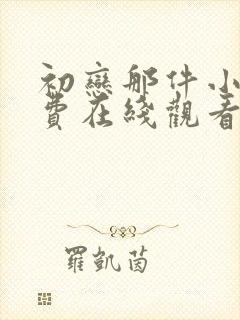 初戀那件小
費在綫觀看
羅凱茵